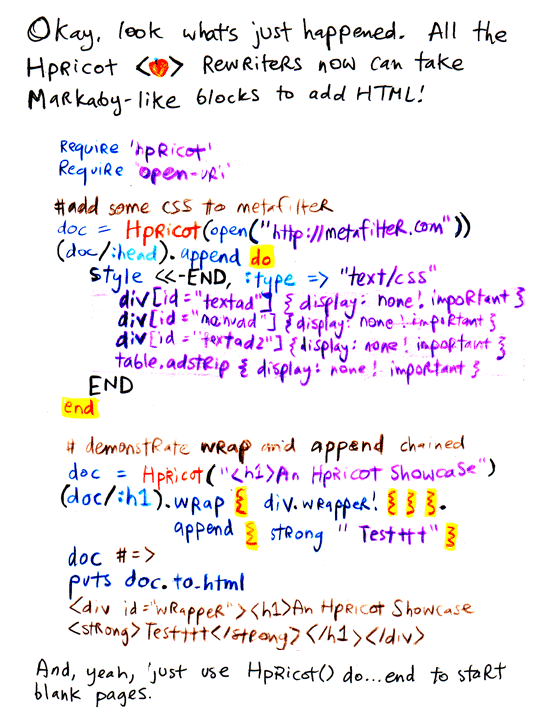 Okay, look what's just happened. All the
Hpricot < > Rewriters now can take
Markaby-like blocks to add HTML!
Require 'hpricot'
Require 'open-uri'
#add some CSS to metafilter
doc = Hpricot(open("http://metafilter.com"))
(doc/:head).append do
style <<-END, :type => "text/css"
div[id="textad"] { display: none !important }
div[id="manuad"] { display: none !important }
div[id="textad2"] { display: none !important }
table.adstrip { display: none !important }
END
end
# demonstrate wrap and append chained
doc = Hpricot("<h1>An Hpricot Showcase")
(doc/:h1).wrap { div.wrapper! { } }.
append { strong "Testttt" }
doc #=>
puts doc.to_html
<div id="wrapper"><h1>An Hpricot Showcase
<strong>Testttt</strong></h1></div>
And, yeah, just use Hpricot() do...end to start
blank pages.